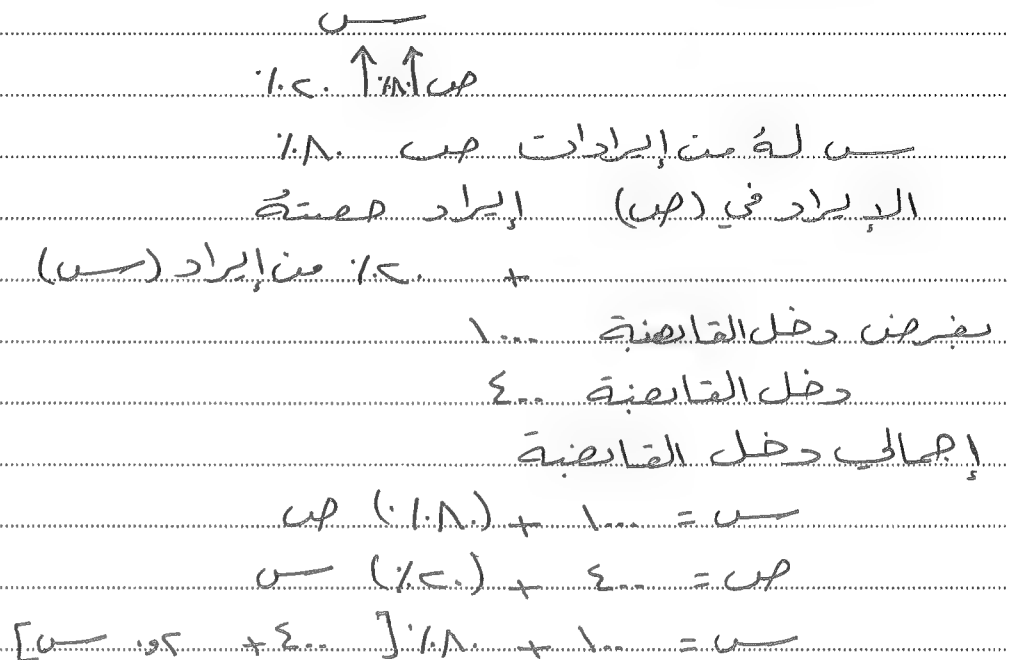 س
ص ↑٨٠٪↑ ٢٠٪
س له من إيرادات ص ٨٠٪
الإيراد في (ص) إيراد حصته
+ ٢٠٪ من إيراد (س)
بفرض دخل القابضة ١٠٠٠
دخل القابضة ٤٠٠
إجمالي دخل القابضة
س = ١٠٠٠ + (٨٠٪) ص
ص = ٤٠٠ + (٢٠٪) س
س = ١٠٠٠ + ٨٠٪ [٤٠٠ + ٠,٢ س]